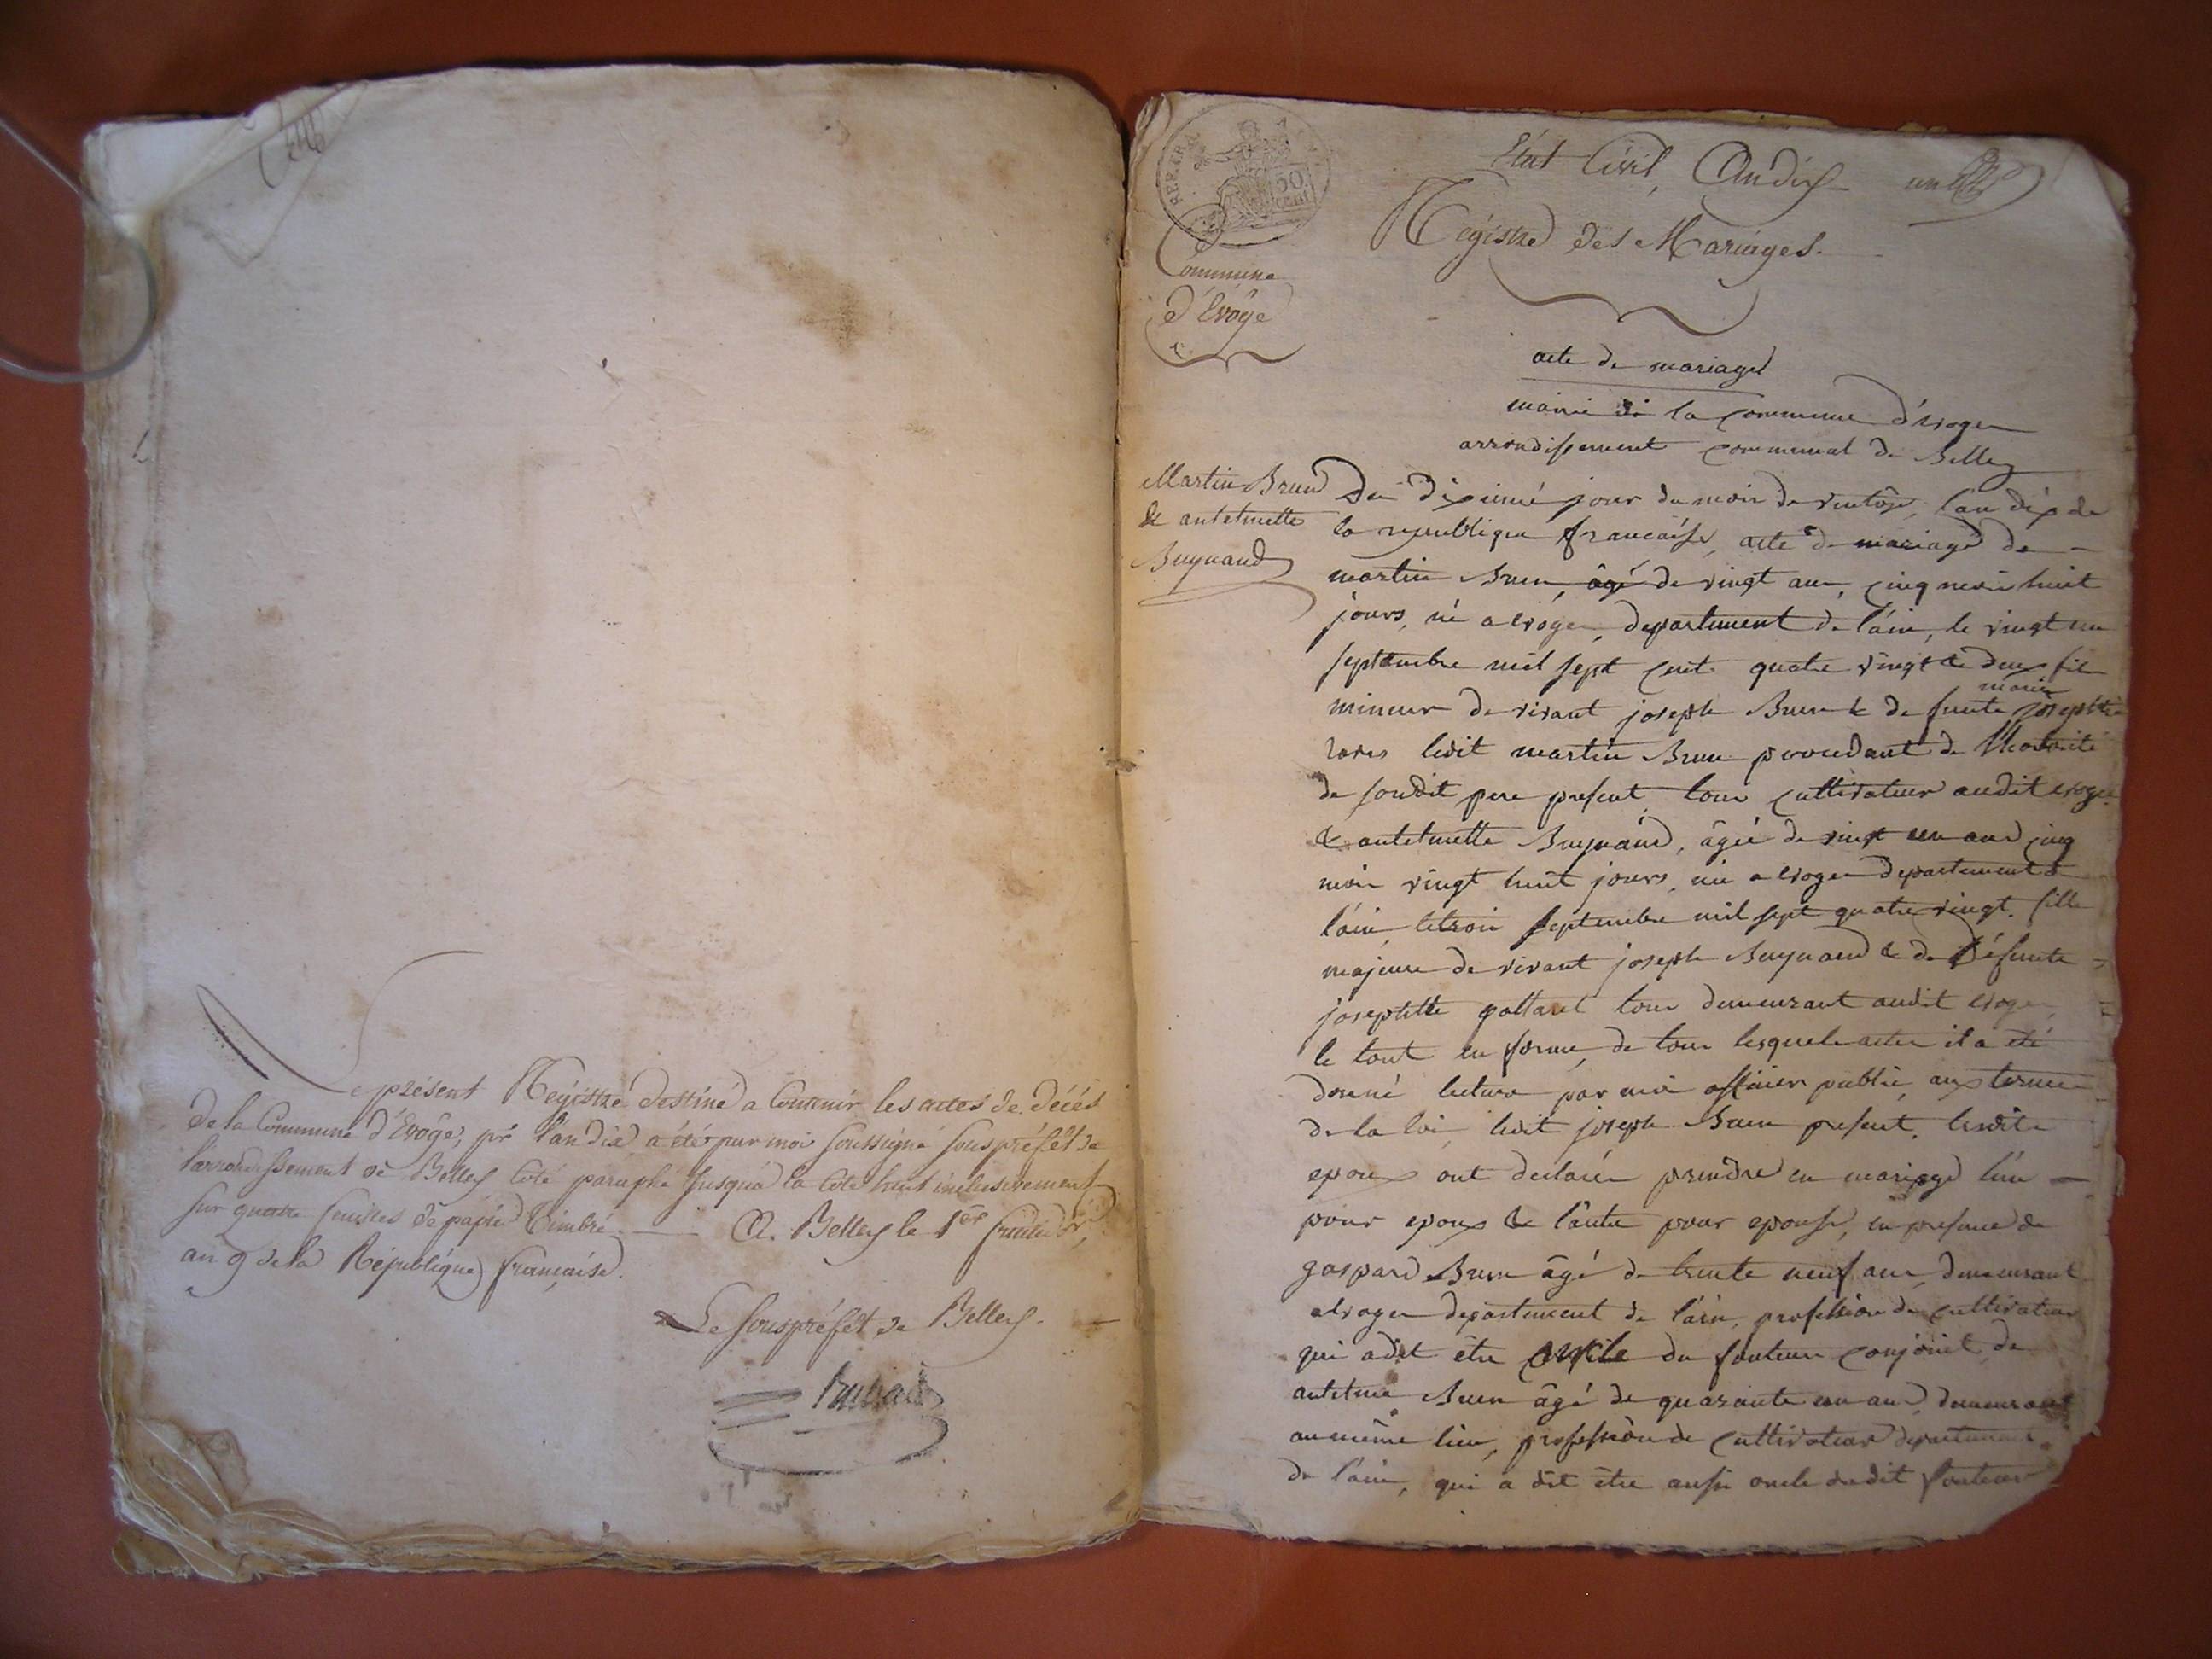 Le présent Régistre destiné a Contenir les actes de décés
de la Commune d'Evôge, pr l'an Dix a été par moi soussigné souspréfêt de
l'arrondissement de Belley Coté paraphé jusqu'a la Cote huit inclusivement
sur quatre feuilles de papier Timbré. A. Belley le 1er fructidor,
an 9 de la République française.
Le souspréfêt de Belley.
REP. FRA.
50
cent
Etat Civil, An dix un
Régistre des Mariages.
Commune
d'Evôge
acte de mariage
mairie de la commune d'evoge
arrondissement communal de Belley
Martin Brun
& antelmette
Buynand
Du dixieme jour du mois de ventôse, l'an dix de
la republique francaise, acte de mariage de
martin Brun, âgé de vingt ans, cinq mois huit
jours, né a evoge, departement de l'ain, le vingt un
septembre mil sept cent quatre vingt & deux fils
mineur de vivant joseph Brun & de funte marie josephte
ledit martin Brun procedant de l'hotorité
de sondit pere present tous cultivateur audit evoge
& antelmette Buynand, âgée de vingt un ans cinq
mois vingt huit jours, née a evoge departement de
l'ain, letrois septembre mil sept quatre vingt. fille
majeure de vivant joseph Buynand & de Défunte
josephtte gottard tous demeurant audit evoge,
le tout en forme, de tous lesquels actes il a été
donné lecture par moi officier public, aux termes
de la loi, ledit joseph Brun present. lesdits
epoux ont declarés prendre en mariage l'un
pour epoux & l'autre pour epouse, en presence de
gaspard Brun âgé de trente neuf ans, demeurant
a evoge departement de l'ain, profession de cultivateur
qui a dit être oncle du conjoint, de
antelme Brun âgé de quarante un ans, demeurant
au même lieu, profession de cultivateur departement
de l'ain, qui a dit être aussi oncle dudit